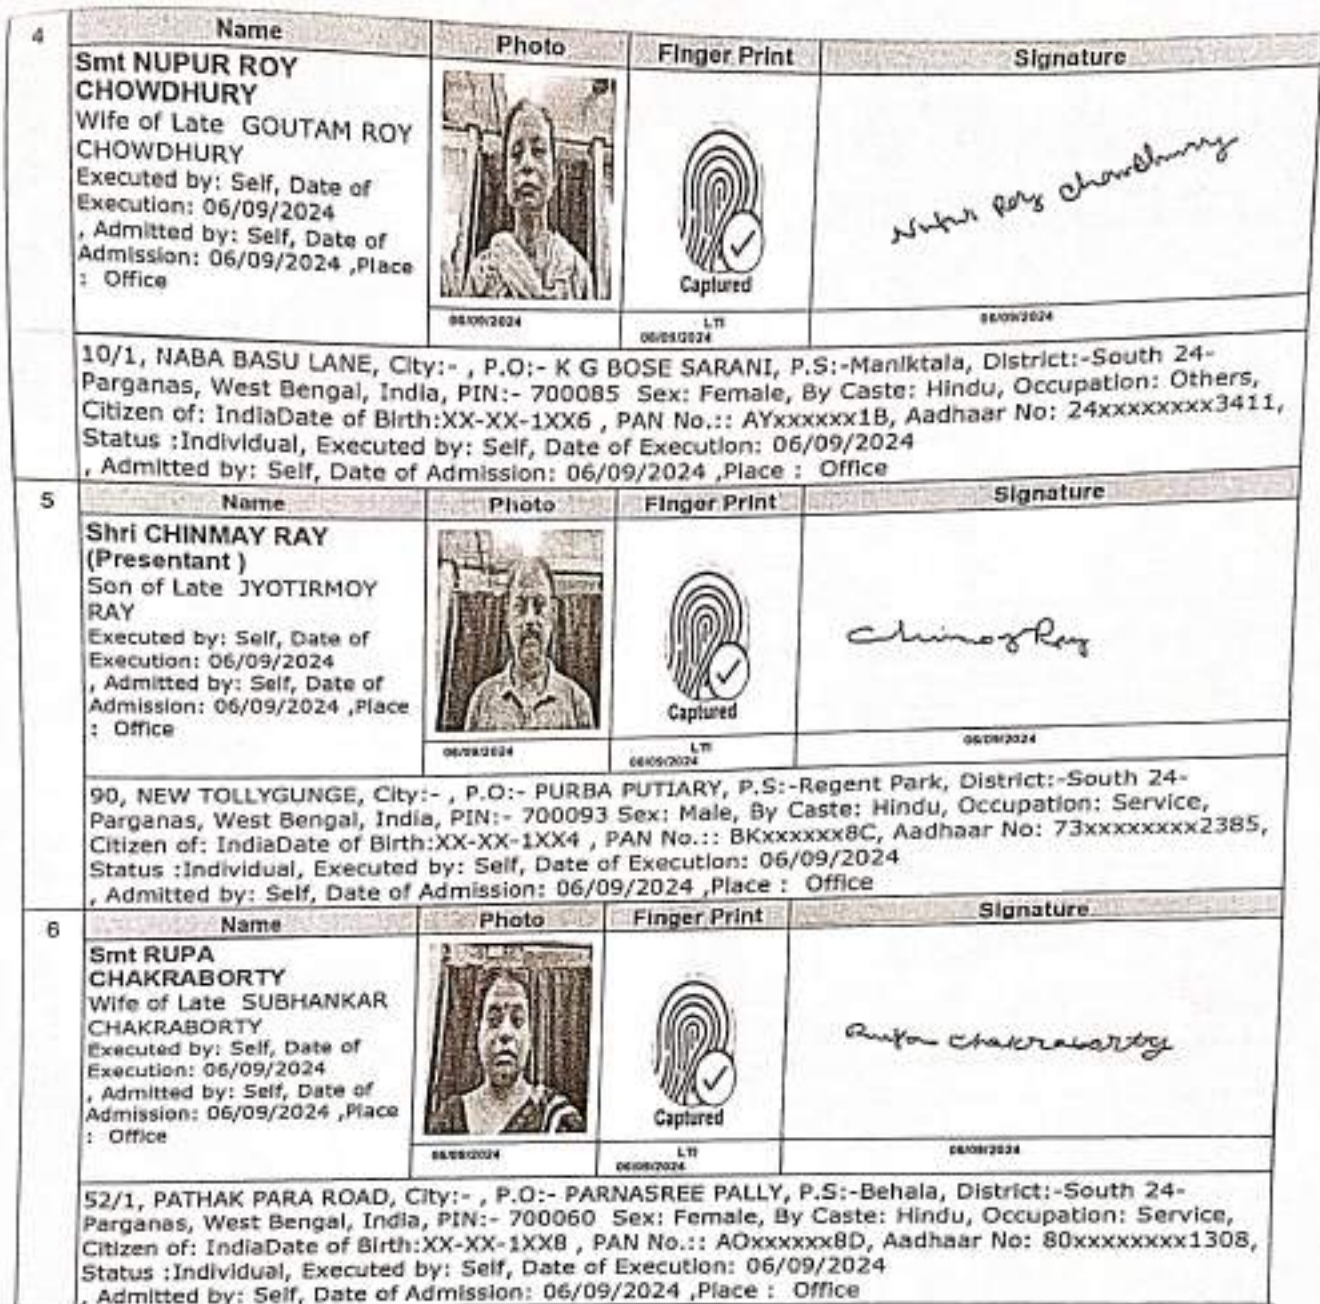 4
Name Photo Finger Print Signature
Smt NUPUR ROY
CHOWDHURY
Wife of Late GOUTAM ROY
CHOWDHURY
Executed by: Self, Date of
Execution: 06/09/2024
, Admitted by: Self, Date of
Admission: 06/09/2024 ,Place
: Office
Captured
Nupur Roy Chowdhury
06/09/2024 LTI 06/09/2024
06/09/2024
10/1, NABA BASU LANE, City:- , P.O:- K G BOSE SARANI, P.S:-Maniktala, District:-South 24-
Parganas, West Bengal, India, PIN:- 700085 Sex: Female, By Caste: Hindu, Occupation: Others,
Citizen of: IndiaDate of Birth:XX-XX-1XX6 , PAN No.:: AYxxxxxx1B, Aadhaar No: 24xxxxxxxx3411,
Status :Individual, Executed by: Self, Date of Execution: 06/09/2024
, Admitted by: Self, Date of Admission: 06/09/2024 ,Place : Office
5
Name Photo Finger Print Signature
Shri CHINMAY RAY
(Presentant )
Son of Late JYOTIRMOY
RAY
Executed by: Self, Date of
Execution: 06/09/2024
, Admitted by: Self, Date of
Admission: 06/09/2024 ,Place
: Office
Captured
Chinmoy Ray
06/09/2024 LTI 06/09/2024
06/09/2024
90, NEW TOLLYGUNGE, City:- , P.O:- PURBA PUTIARY, P.S:-Regent Park, District:-South 24-
Parganas, West Bengal, India, PIN:- 700093 Sex: Male, By Caste: Hindu, Occupation: Service,
Citizen of: IndiaDate of Birth:XX-XX-1XX4 , PAN No.:: BKxxxxxx8C, Aadhaar No: 73xxxxxxxx2385,
Status :Individual, Executed by: Self, Date of Execution: 06/09/2024
, Admitted by: Self, Date of Admission: 06/09/2024 ,Place : Office
6
Name Photo Finger Print Signature
Smt RUPA
CHAKRABORTY
Wife of Late SUBHANKAR
CHAKRABORTY
Executed by: Self, Date of
Execution: 06/09/2024
, Admitted by: Self, Date of
Admission: 06/09/2024 ,Place
: Office
Captured
Rupa Chakraborty
06/09/2024 LTI 06/09/2024
06/09/2024
52/1, PATHAK PARA ROAD, City:- , P.O:- PARNASREE PALLY, P.S:-Behala, District:-South 24-
Parganas, West Bengal, India, PIN:- 700060 Sex: Female, By Caste: Hindu, Occupation: Service,
Citizen of: IndiaDate of Birth:XX-XX-1XX8 , PAN No.:: AOxxxxxx8D, Aadhaar No: 80xxxxxxxx1308,
Status :Individual, Executed by: Self, Date of Execution: 06/09/2024
, Admitted by: Self, Date of Admission: 06/09/2024 ,Place : Office